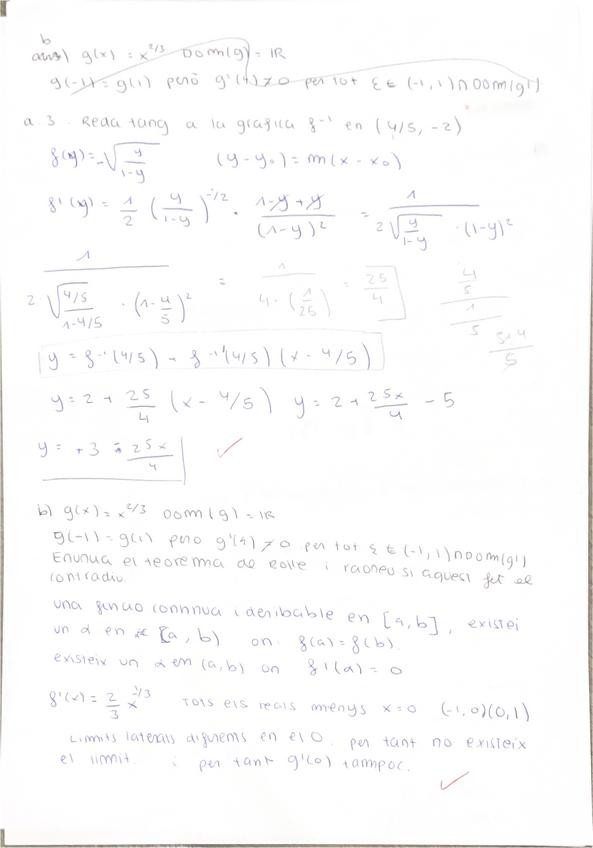 b
g(x) = x^{2/3} Dom(g) = IR
g(-1) = g(1) però g'(ξ) ≠ 0 per tot ξ ∈ (-1, 1) ∩ Dom(g')
a. 3. Reda tang a la grafica f^{-1} en (4/5, -2)
f(y) = -√(y/(1-y)) (y-y_0) = m(x-x_0)
f'(y) = 1/2 (y/(1-y))^{-1/2} · (1-y+y)/(1-y)^2 = 1/(2√(y/(1-y)) · (1-y)^2)
1/(2·√((4/5)/(1-4/5)) · (1-4/5)^2) = 1/(4·(1/25)) = 25/4
(4/5)/(1/5)
5·4/5
y = f^{-1}(4/5) - f^{-1}'(4/5) (x - 4/5)
y = 2 + 25/4 (x - 4/5) y = 2 + 25x/4 - 5
y = + 3 = 25x/4
b) g(x) = x^{2/3} Dom(g) = IR
g(-1) = g(1) però g'(ξ) ≠ 0 per tot ξ ∈ (-1, 1) ∩ Dom(g')
Enunua el teorema de Rolle i raoneu si aquest fet el
contradiu.
una funuo connnua i deribable en [a, b], existei
un α en [a, b) on f(a) = f(b).
existeix un α en (a, b) on f'(α) = 0
f'(x) = 2/3 x^{-1/3} Tots els reals menys x = 0 (-1, 0)(0, 1)
Limits laterals diferents en el 0. per tant no existeix
el limit. i per tant g'(0) tampoc.